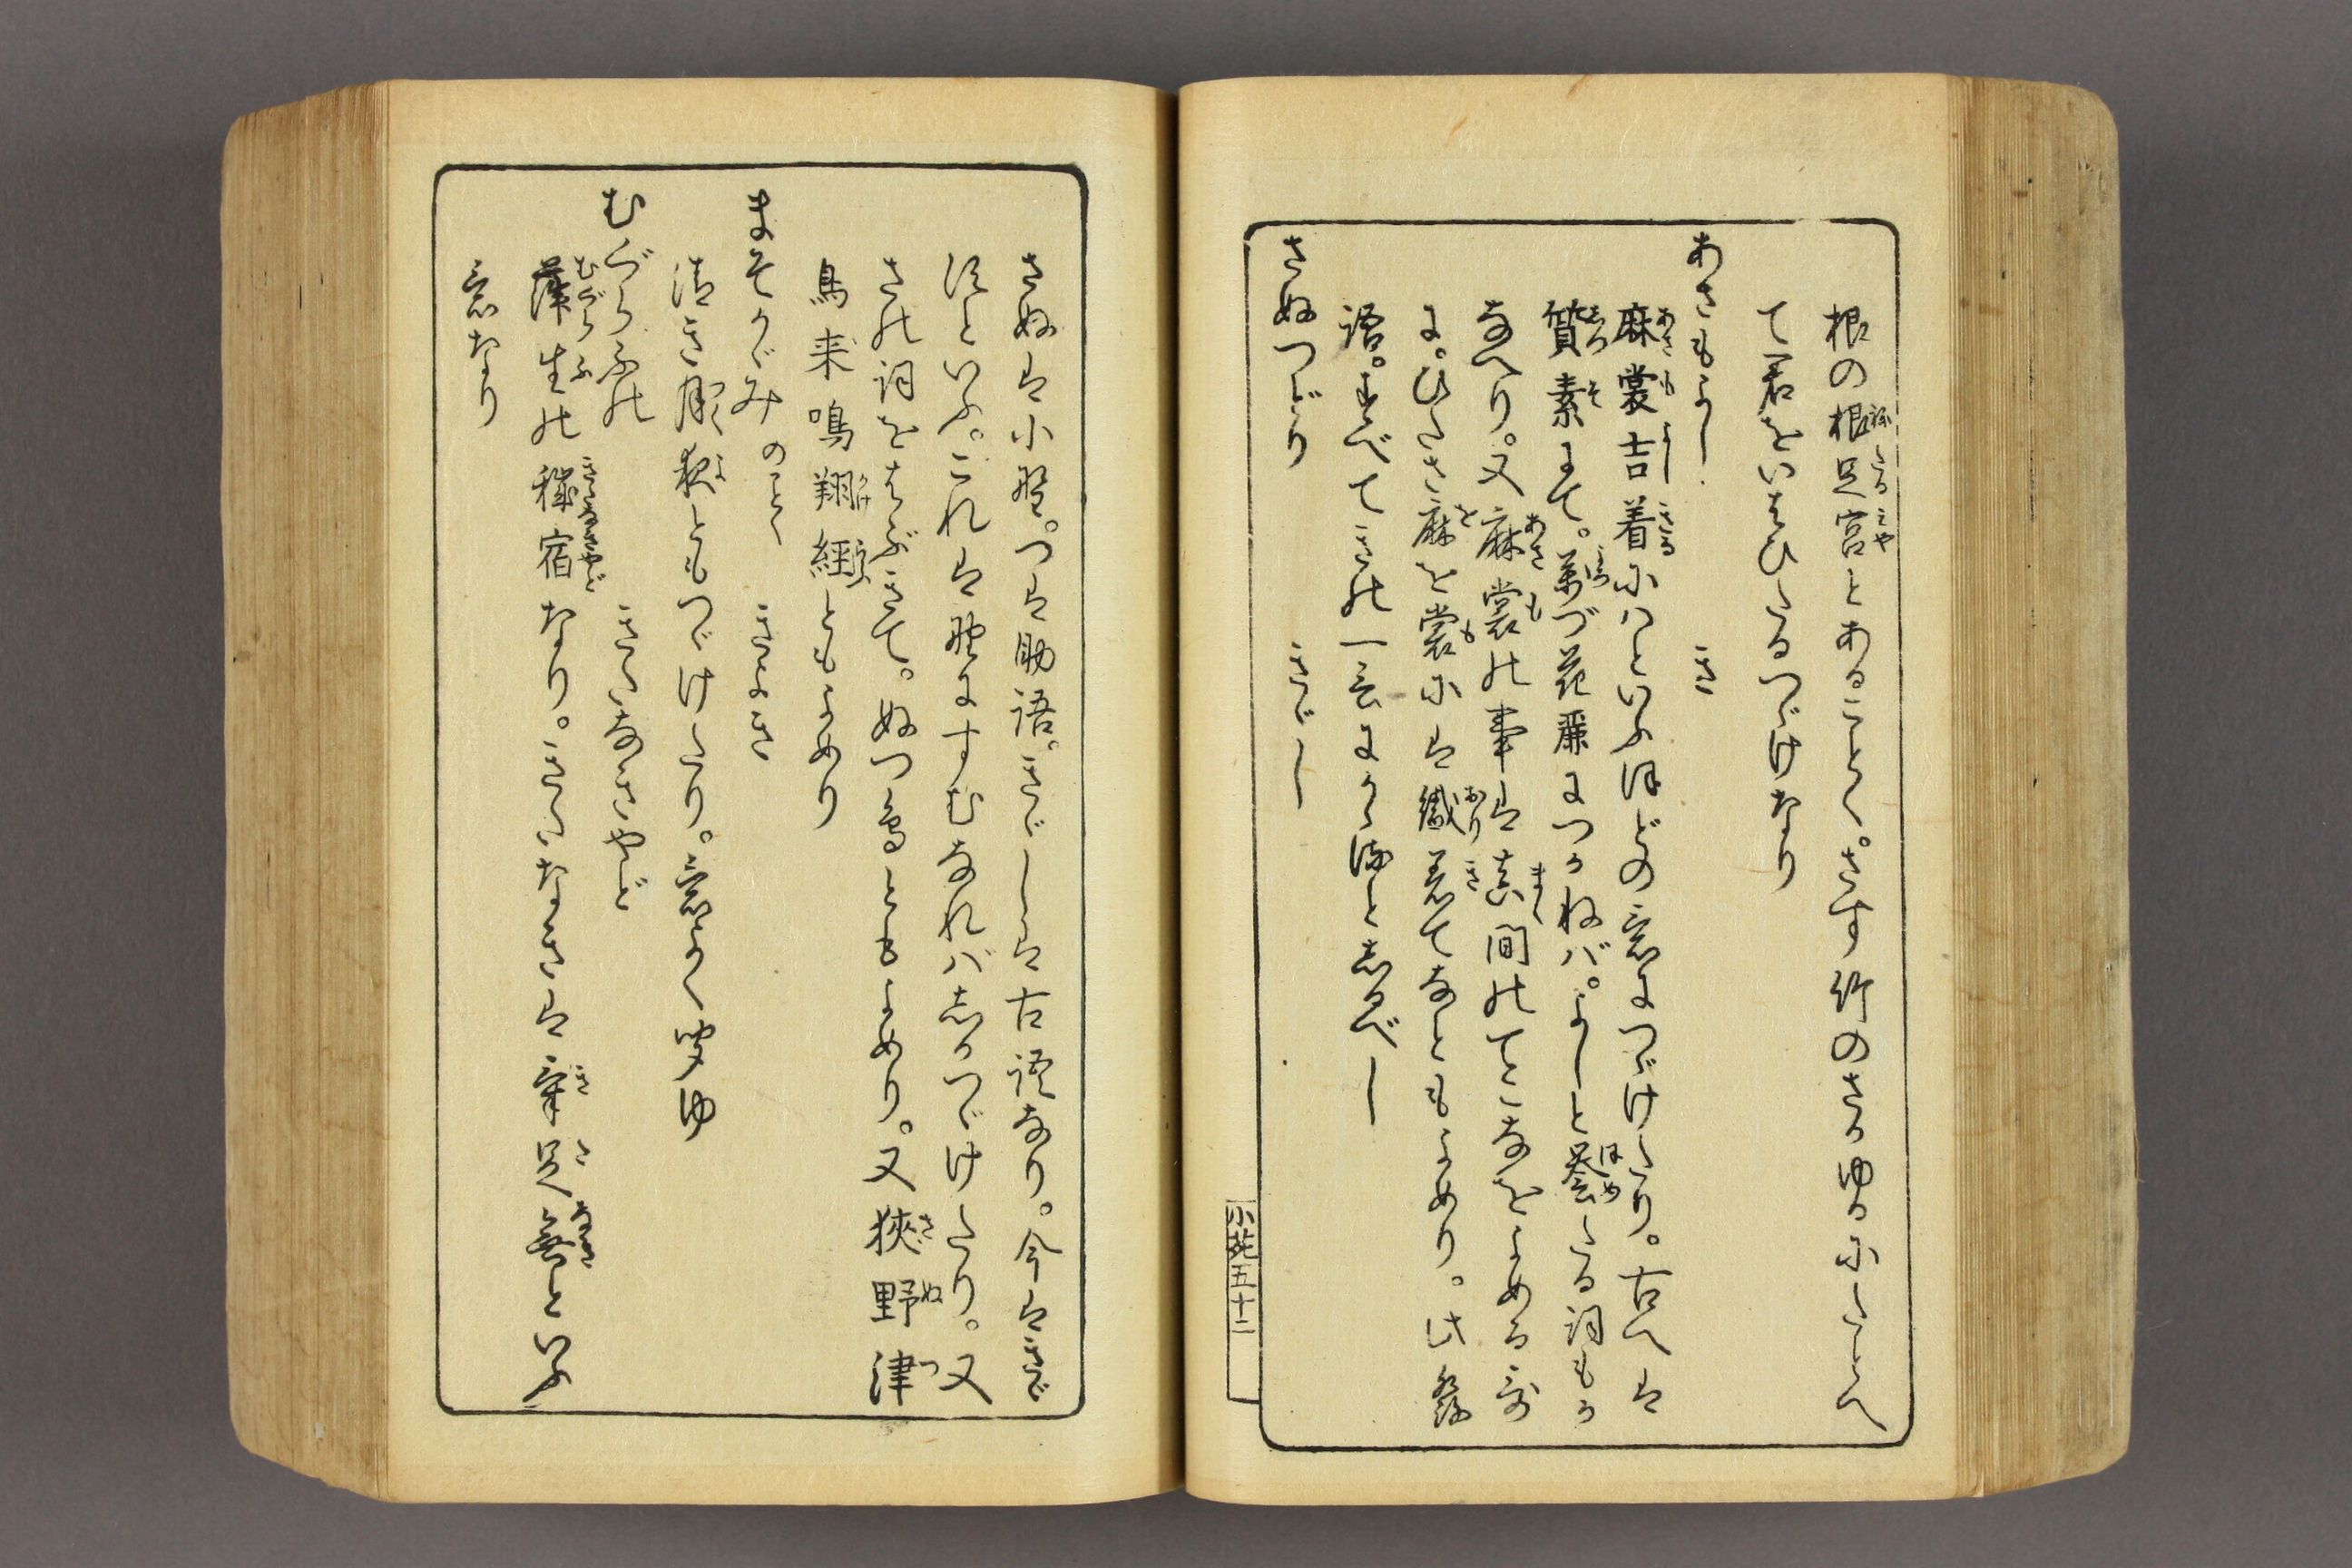 根の根足宮とあることく。さす竹のさかゆるにたとへ
て君をいはひたるつゞけなり
あさもよし　き
麻裳吉着にハといふほどの意につゞけたり。古へは
質素にて。萬づ花麗につかねバ。よしと誉たる詞もか
なへり。又麻裳の事は真間のてこなをよめる哥
に。ひたさ麻を裳には織着てなともよめり。此發
語。すべてきの一言にかゝ流と志るべし
さぬつどり　きゞし
さぬは小野。つは助語。きゞしは古語なり。今はきじ
須といふ。これは野にすむなれバ志かつゞけたり。又
さの詞をはぶきて。ぬつ鳥ともよめり。又狹野津
鳥来鳴翔經ともよめり
まそかゞみのことく　きよき
清き月夜ともつゞけたり。意よく聞ゆ
むぐらふの　きたなきやど
葎生の穢宿なり。きたなきは 足無といふ
意なり
小苑五十二